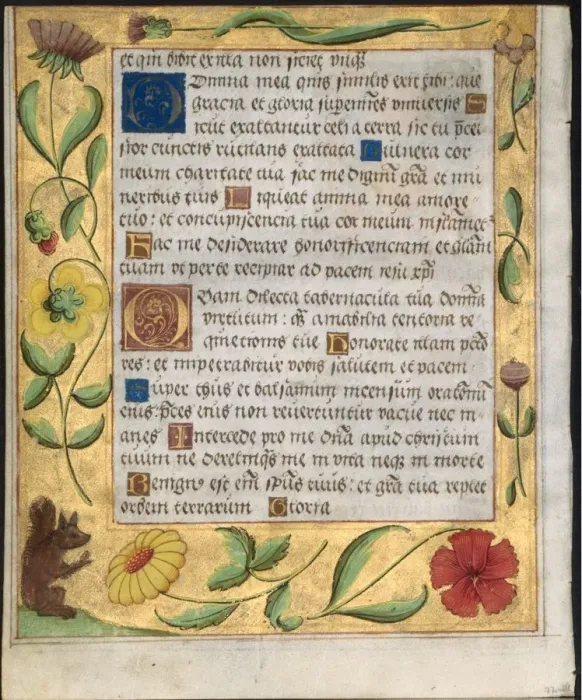 et qui dixit extra non sicies unq̃
Domina mea quis similis erit tibi: que
gracia et gloria superemines universis S
icut exaltantur celi a terra sic tu p̃cel
sior cunctis ruticans exaltata Vulnera cor
meum charitate tua fac me dignũ grã et mu
neribus tuis Liqueat anima mea amore
tuo: et concupiscencia tua cor meum inflamet
Fac me desiderare honorificenciam et gloriã
tuam ut per te recipiar ad pacem xp̃i
Quam dilecta tabernacula tua domina
virtutum: q̃ amabilia tentoria re
quietionis tue Honorate illam
res: et impetrabitur vobis salutem et pacem
Super thus et balsamum incensum
eius: p̃ces eius non revertuntur vacue nec in
anes Intercede pro me dñã apud christum
tuum ne derelinq̃s me in vita neq̃ in morte
Benign9 est em̃ sp̃us tuus: et grã tua replet
orbem terrarum Gloria